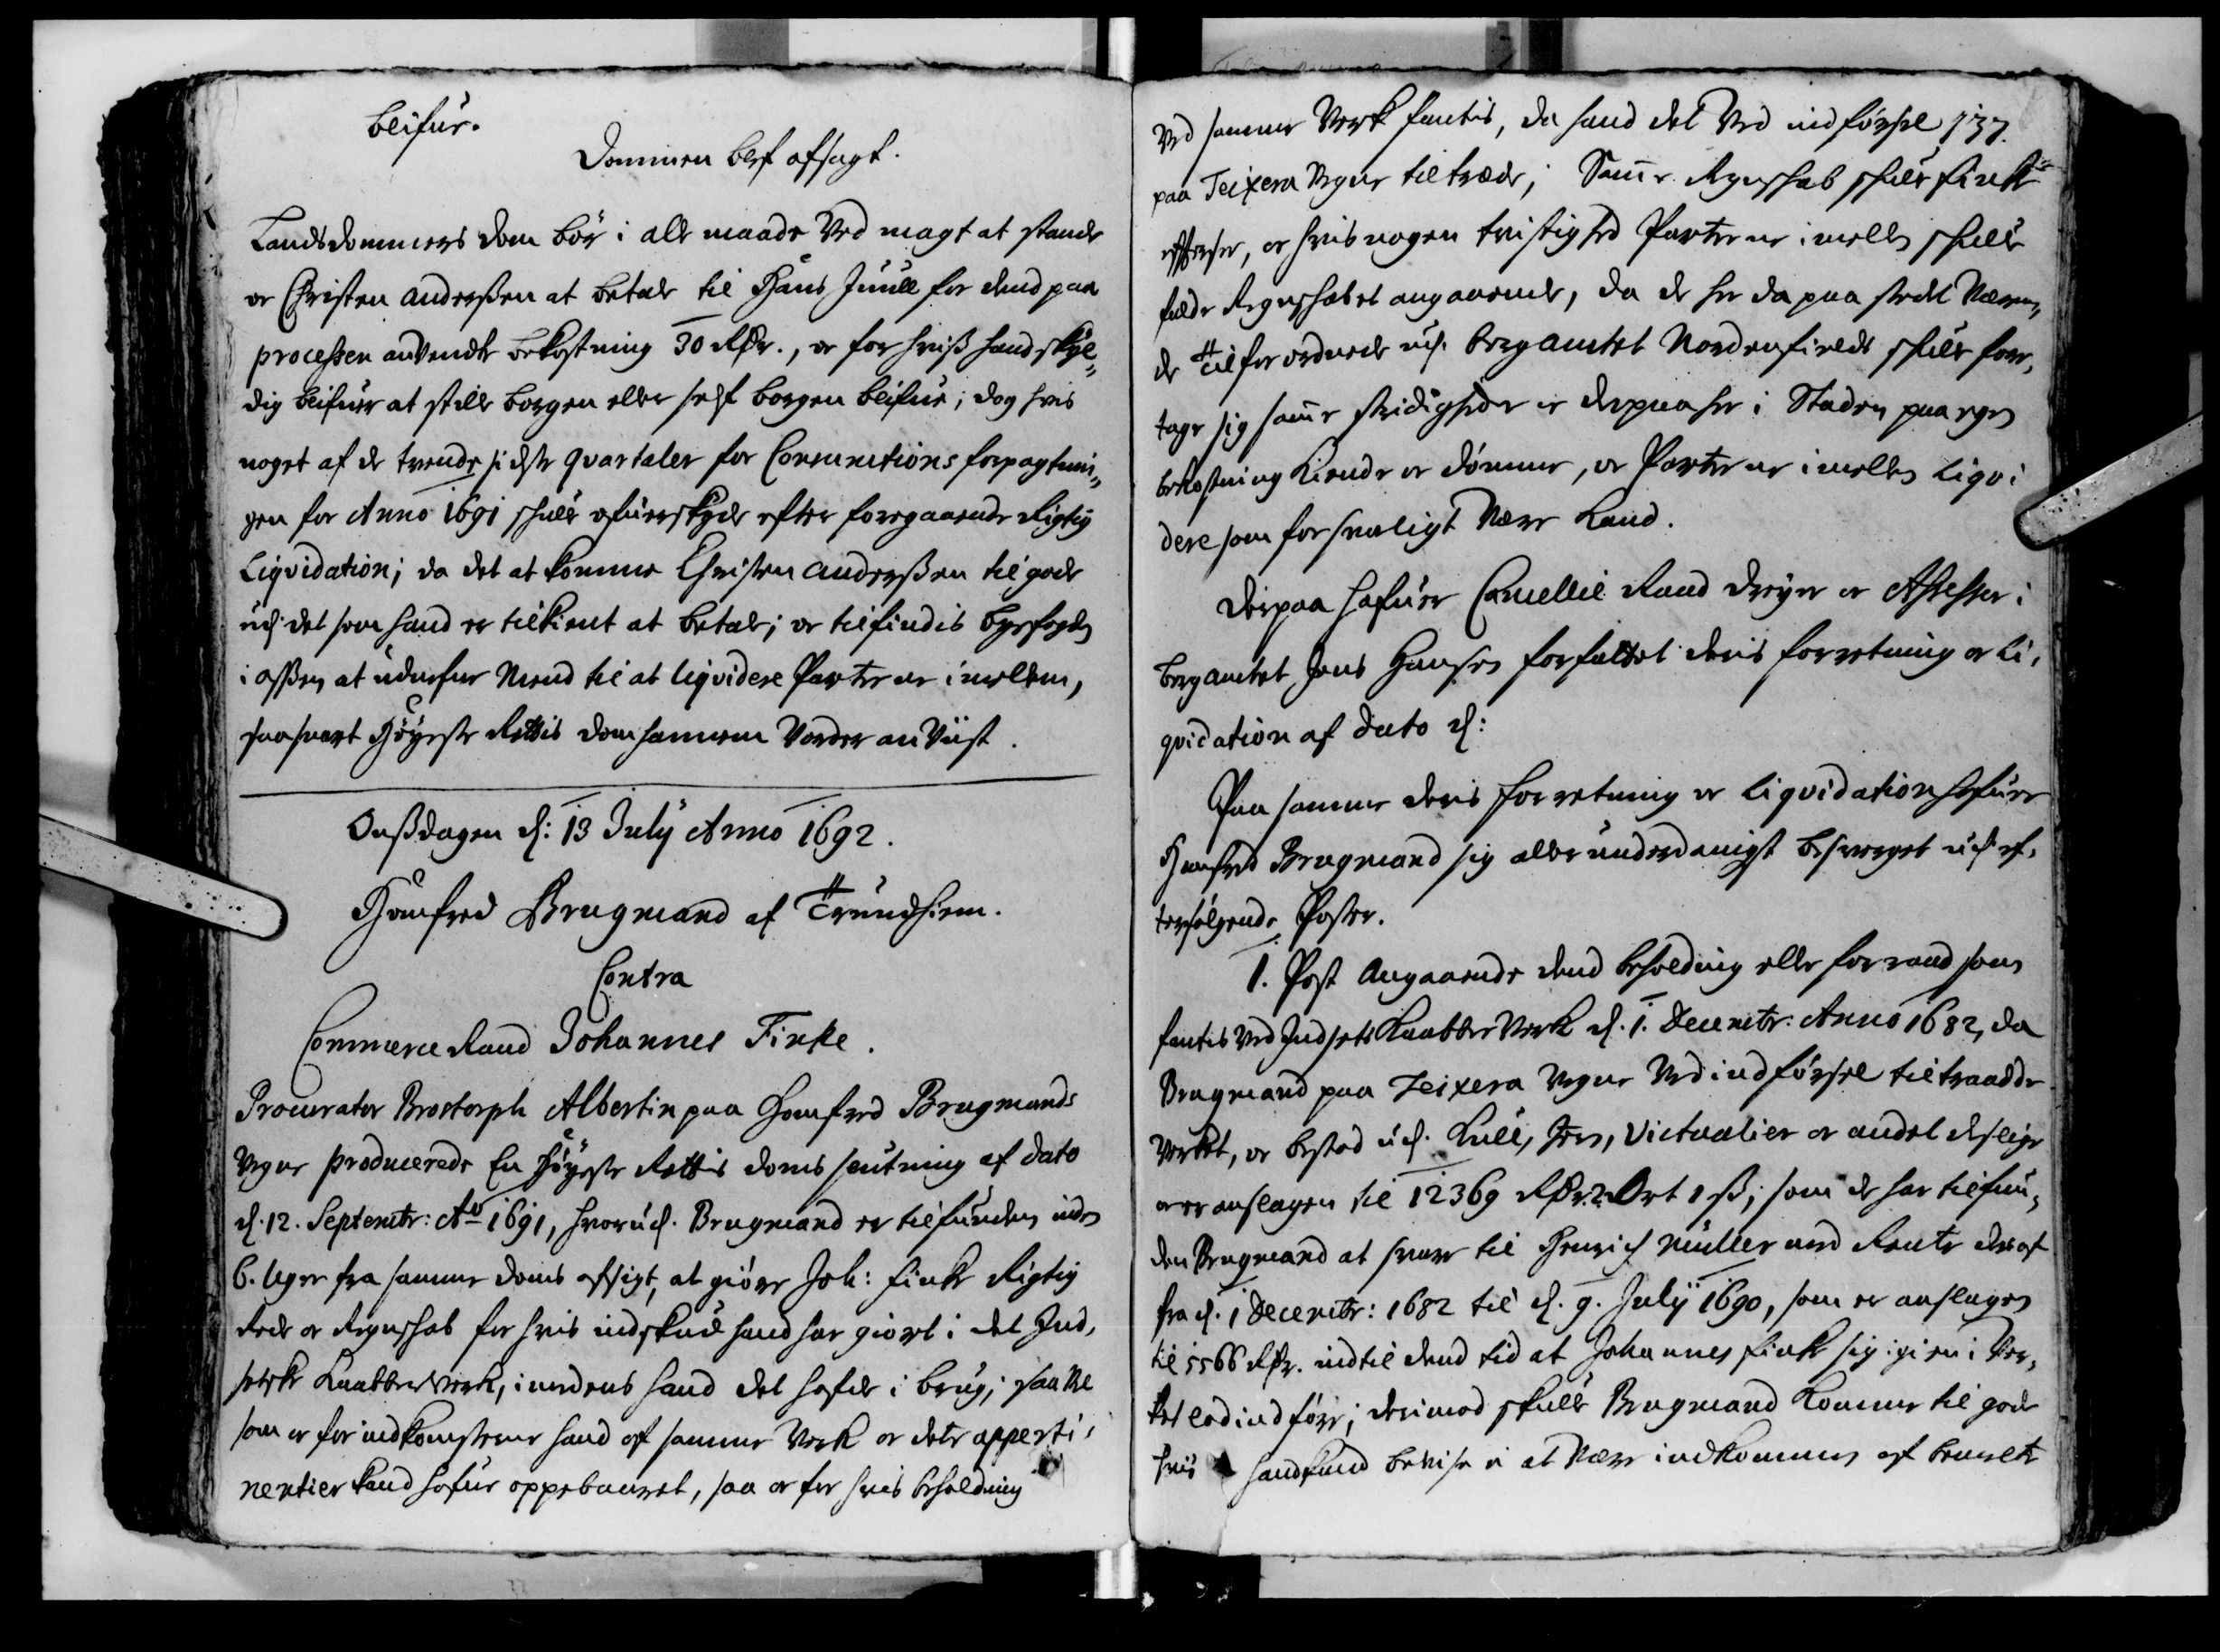 blifur.
Dommen blef afsagt.
Landsdommers dom bör i alle maade Ved magt at stande
oc Christen Anderssen at betale til Hans Juull for dend paa
processen anvendte bekostning 30 Rdr., oc for hviss hand skyl„
dig blifuer at stille borgen eller self borgen blifue; dog hvis
noget af de trende sidste quartaler for Consumtions forpagtnin„
gen for Anno 1691 skulle ofuerskyde efter foregaaende Rigtig
Liqvidation; da det at komme Christen Anderssen til gode
udj det som hand er tilkient at betale; oc tilfindis byefogden
i Assens at udnefne Mend til at liqvidere Parterne imellem,
saasnart Höyeste Rettis dom hannem Vorder anViist.
Onssdagen d: 13 July Anno 1692.
Homfred Brugmand af Trundhiem.
Contra
Commerce Raad Johannes Finke.
Procurator Brostorph Albertin paa Homfred Brugmands
Vegne producerede En Höyeste Rettis doms slutning af dato
d. 12. Septembr: Ao 1691, hvorudj Brugmand er tilfunden inden
6. Uger fra samme doms afsigt, at giöre Joh: Finke Rigtig
Rede oc Regnskab for hvis indskud hand har giort i det Ind„
setske Kaabberverk, imedens hand det hafde i brug; saa vel
som oc for indkomsterne hand af samme Verk oc dets apperti„
nentier kand hafue oppebaaret, saa oc for hvis beholdning
Ved samme Verk fantis, da hand det Ved indförsel 137.
paa Teixera Vegne tiltræde; Samme Regnskab skulle Finke
eftersee, oc hvis nogen tvistighed Parterne imellem skulle
falde Regnskabet angaaende, da de her da paa stedet Væren„
de Tilforordnede udj bergamtet Nordenfields skulle fore„
tage sig samme stridigheder oc derpaa her i Staden paa egen
bekostning Kiende oc dömme, oc Parterne imellem Liqvi
dere som forsvarligt Være Kand.
Derpaa hafuer Cancellie Raad Dreyer oc Assessor i
bergamtet Jens Hansen forfattet deris forretning oc Li„
qvidation af dato d:
Paa samme deris forretning oc Liqvidation hafuer
Homfred Brugmand sig allerunderdanigst besverget udj ef„
terfölgende Poster.
1. Post Angaaende dend beholding eller forraad som
fantis Ved Indsets Kaabber Verk d. 1. Decembr: Anno 1682, da
Brugmand paa Teixera Vegne Ved indförsel tiltraadde
Verket, oc bestod udj. Kull, , Victualier oc andet deslige
oc er anslagen til 12369 Rdr. 2 Ort 1 ss; som de har tilfun„
den Brugmand at svare til Henrich Müller med Rente deraf
fra d. 1 Decembr: 1682 til d. 9. July 1690, som er anslagen
til 5566 Rdr. indtil dend tid at Johannes Fink sig igien i Ver„
ket lod indföre; derimod skulle Brugmand Komme til gode
hvis hand kand bevise at Være indkommen af bemelte